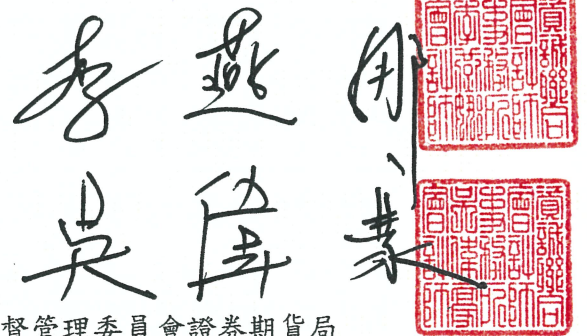 李燕娜
資誠聯合會計師事務所李燕娜會計師
吳偉豪
資誠聯合會計師事務所吳偉豪會計師
督管理委員會證券期貨局